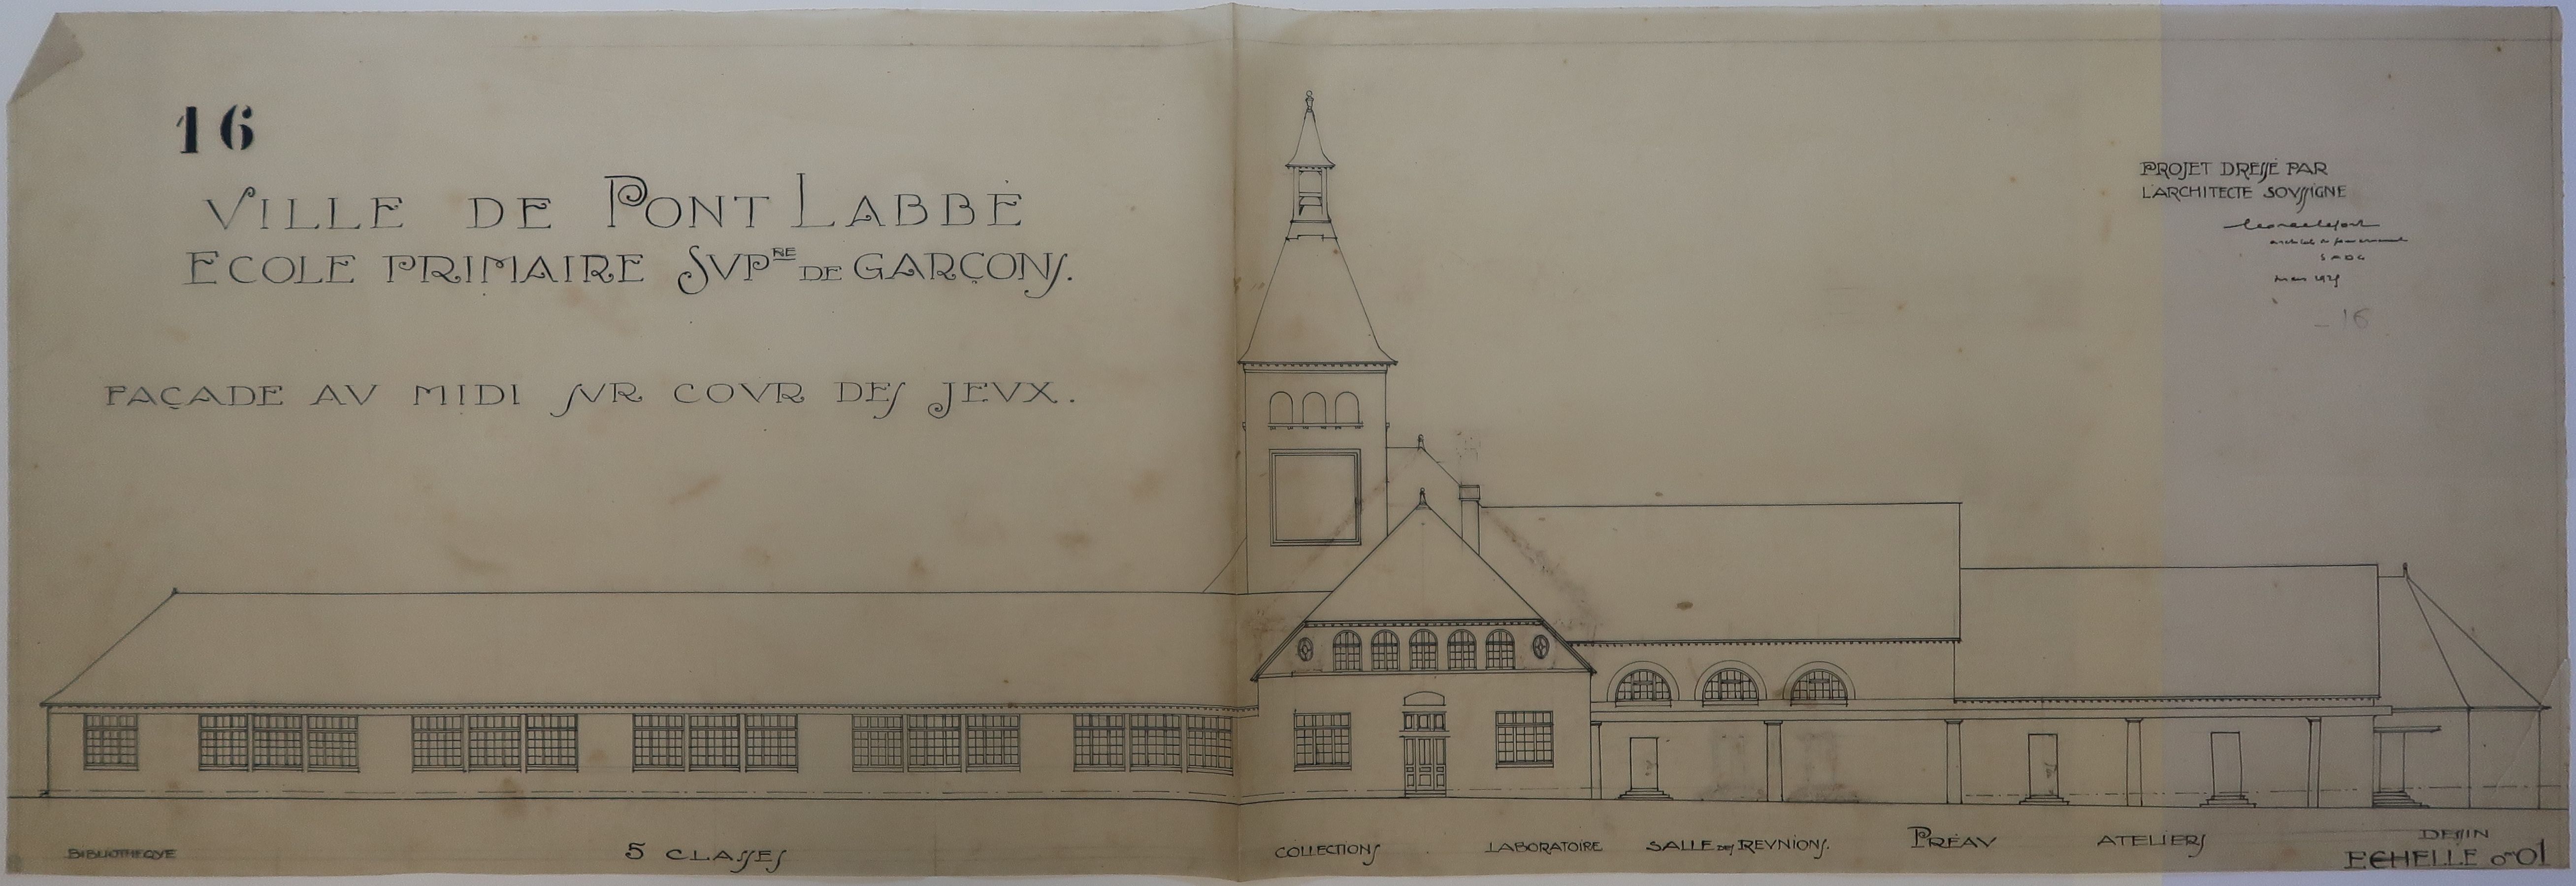 16
VILLE DE PONT LABBÉ
ECOLE PRIMAIRE SVPRE DE GARÇONS.
FAÇADE AV MIDI SVR COVR DES JEVX.
PROJET DRESSÉ PAR
L'ARCHITECTE SOVSSIGNE
SADG
mars
_ 16
BIBLIOTHEQVE 5 CLASSES COLLECTIONS LABORATOIRE SALLE DES REVNIONS. PRÉAV ATELIERS DESSIN
ECHELLE 0m01